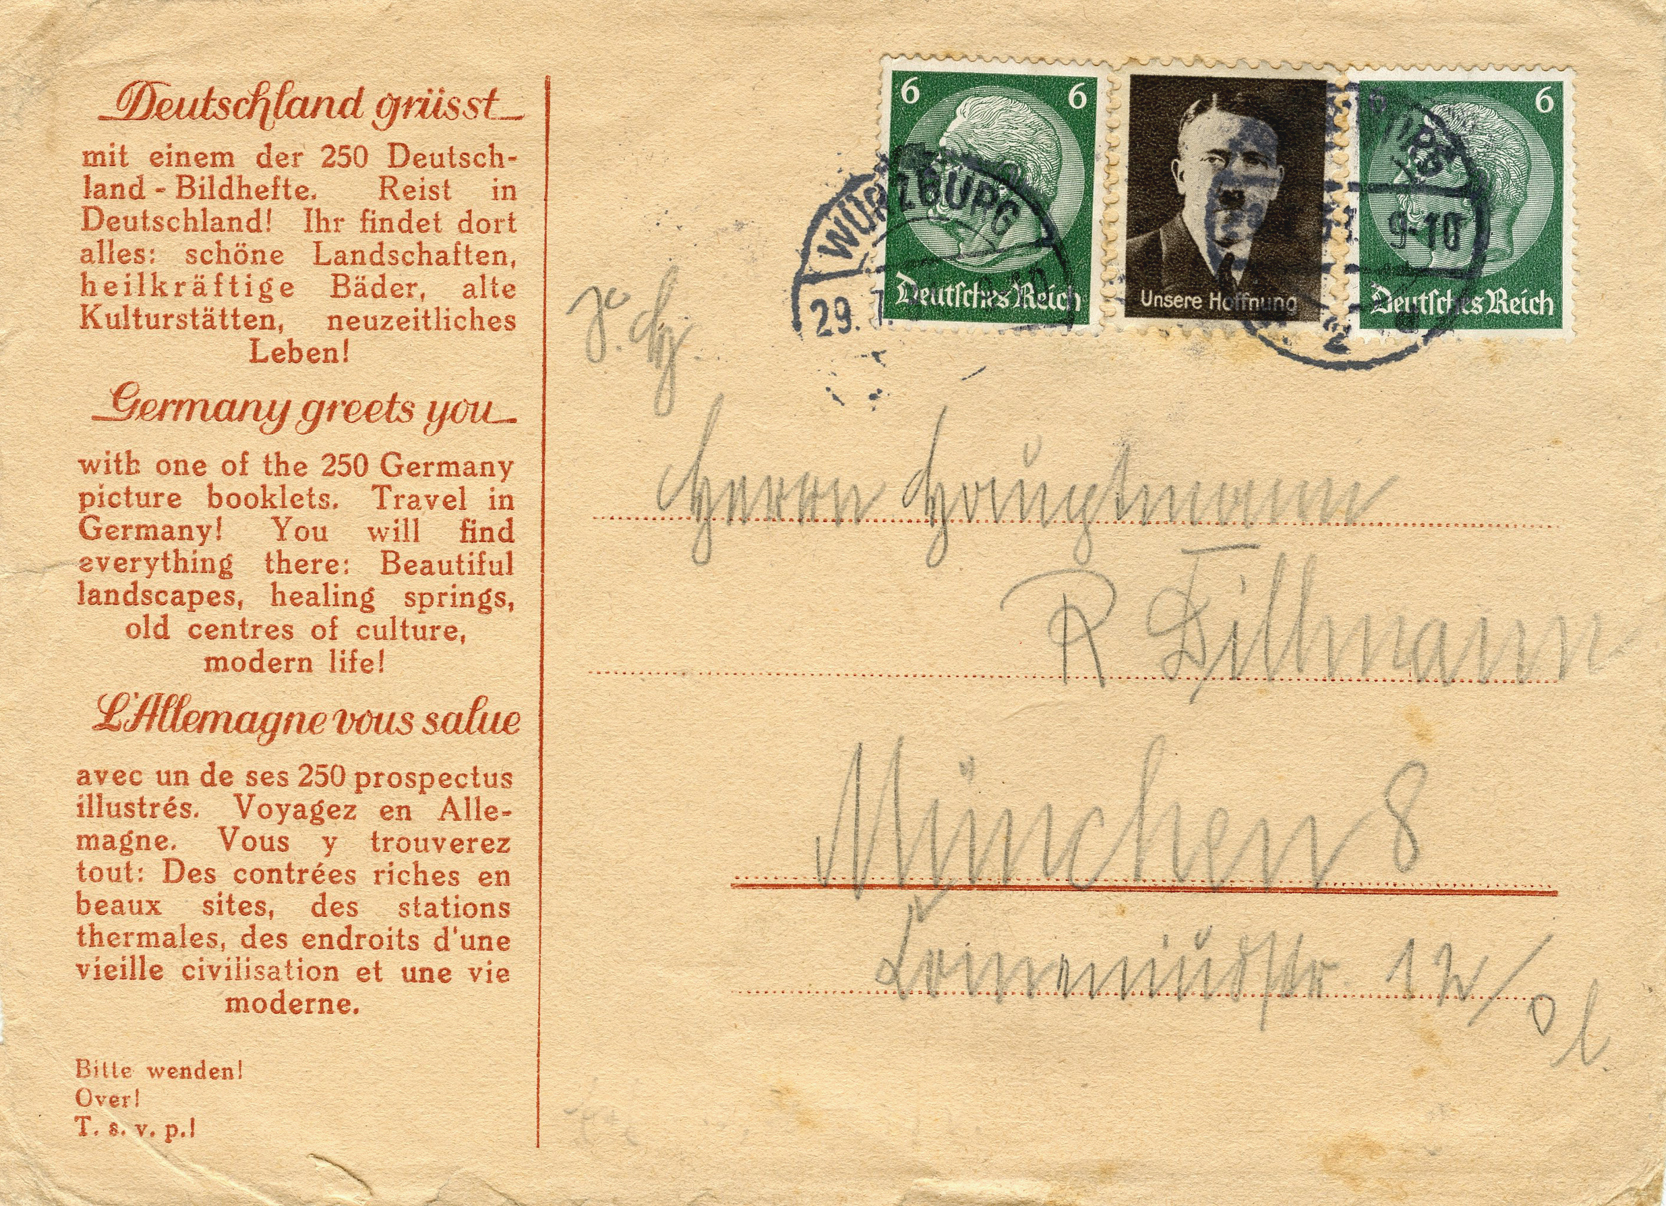 Deutschland grüsst
mit einem der 250 Deutsch-
land - Bildhefte. Reist in
Deutschland! Ihr findet dort
alles: schöne Landschaften,
heilkräftige Bäder, alte
Kulturstätten, neuzeitliches
Leben!
Germany greets you
with one of the 250 Germany
picture booklets. Travel in
Germany! You will find
everything there: Beautiful
landscapes, healing springs,
old centres of culture,
modern life!
L'Allemagne vous salue
avec un de ses 250 prospectus
illustrés. Voyagez en Alle-
magne. Vous y trouverez
tout: Des contrées riches en
beaux sites, des stations
thermales, des endroits d'une
vieille civilisation et une vie
moderne.
Bitte wenden!
Over!
T. s. v. p.!
6 6
Deutsches Reich
Unsere Hoffnung
6
Deutsches Reich
WÜRZBURG
29.7.
9-10
2
Herrn Hauptmann
R Dillmann
München 8
12/0 l.